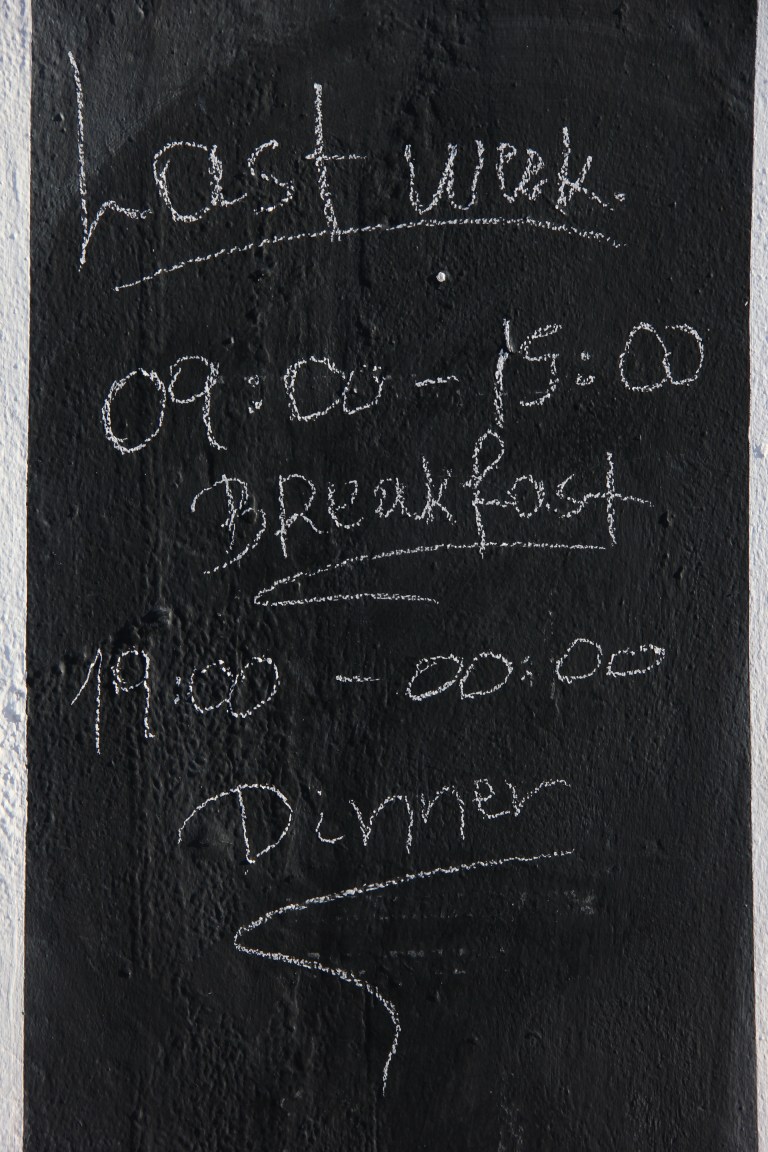 Last week.
09:00 - 15:00
BReakfast
19:00 - 00:00
Dinner